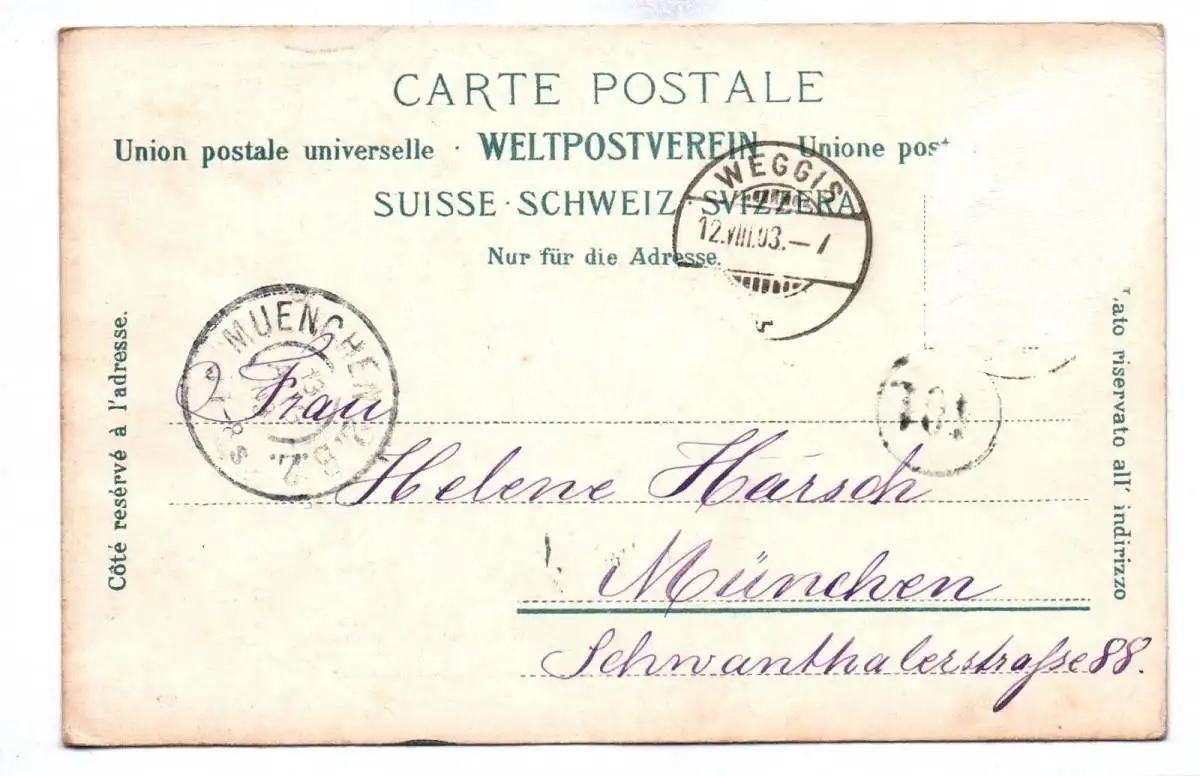 CARTE POSTALE
Union postale universelle · WELTPOSTVEREIN Unione post
SUISSE · SCHWEIZ SVIZZERA
Nur für die Adresse.
WEGGIS
12.VIII.03.—
MUENCHEN
B.Z.
Côté resérvé à l'adresse.
Lato riservato all' indirizzo
Frau
Helene Härsch
München
Schwanthalerstraße 88.